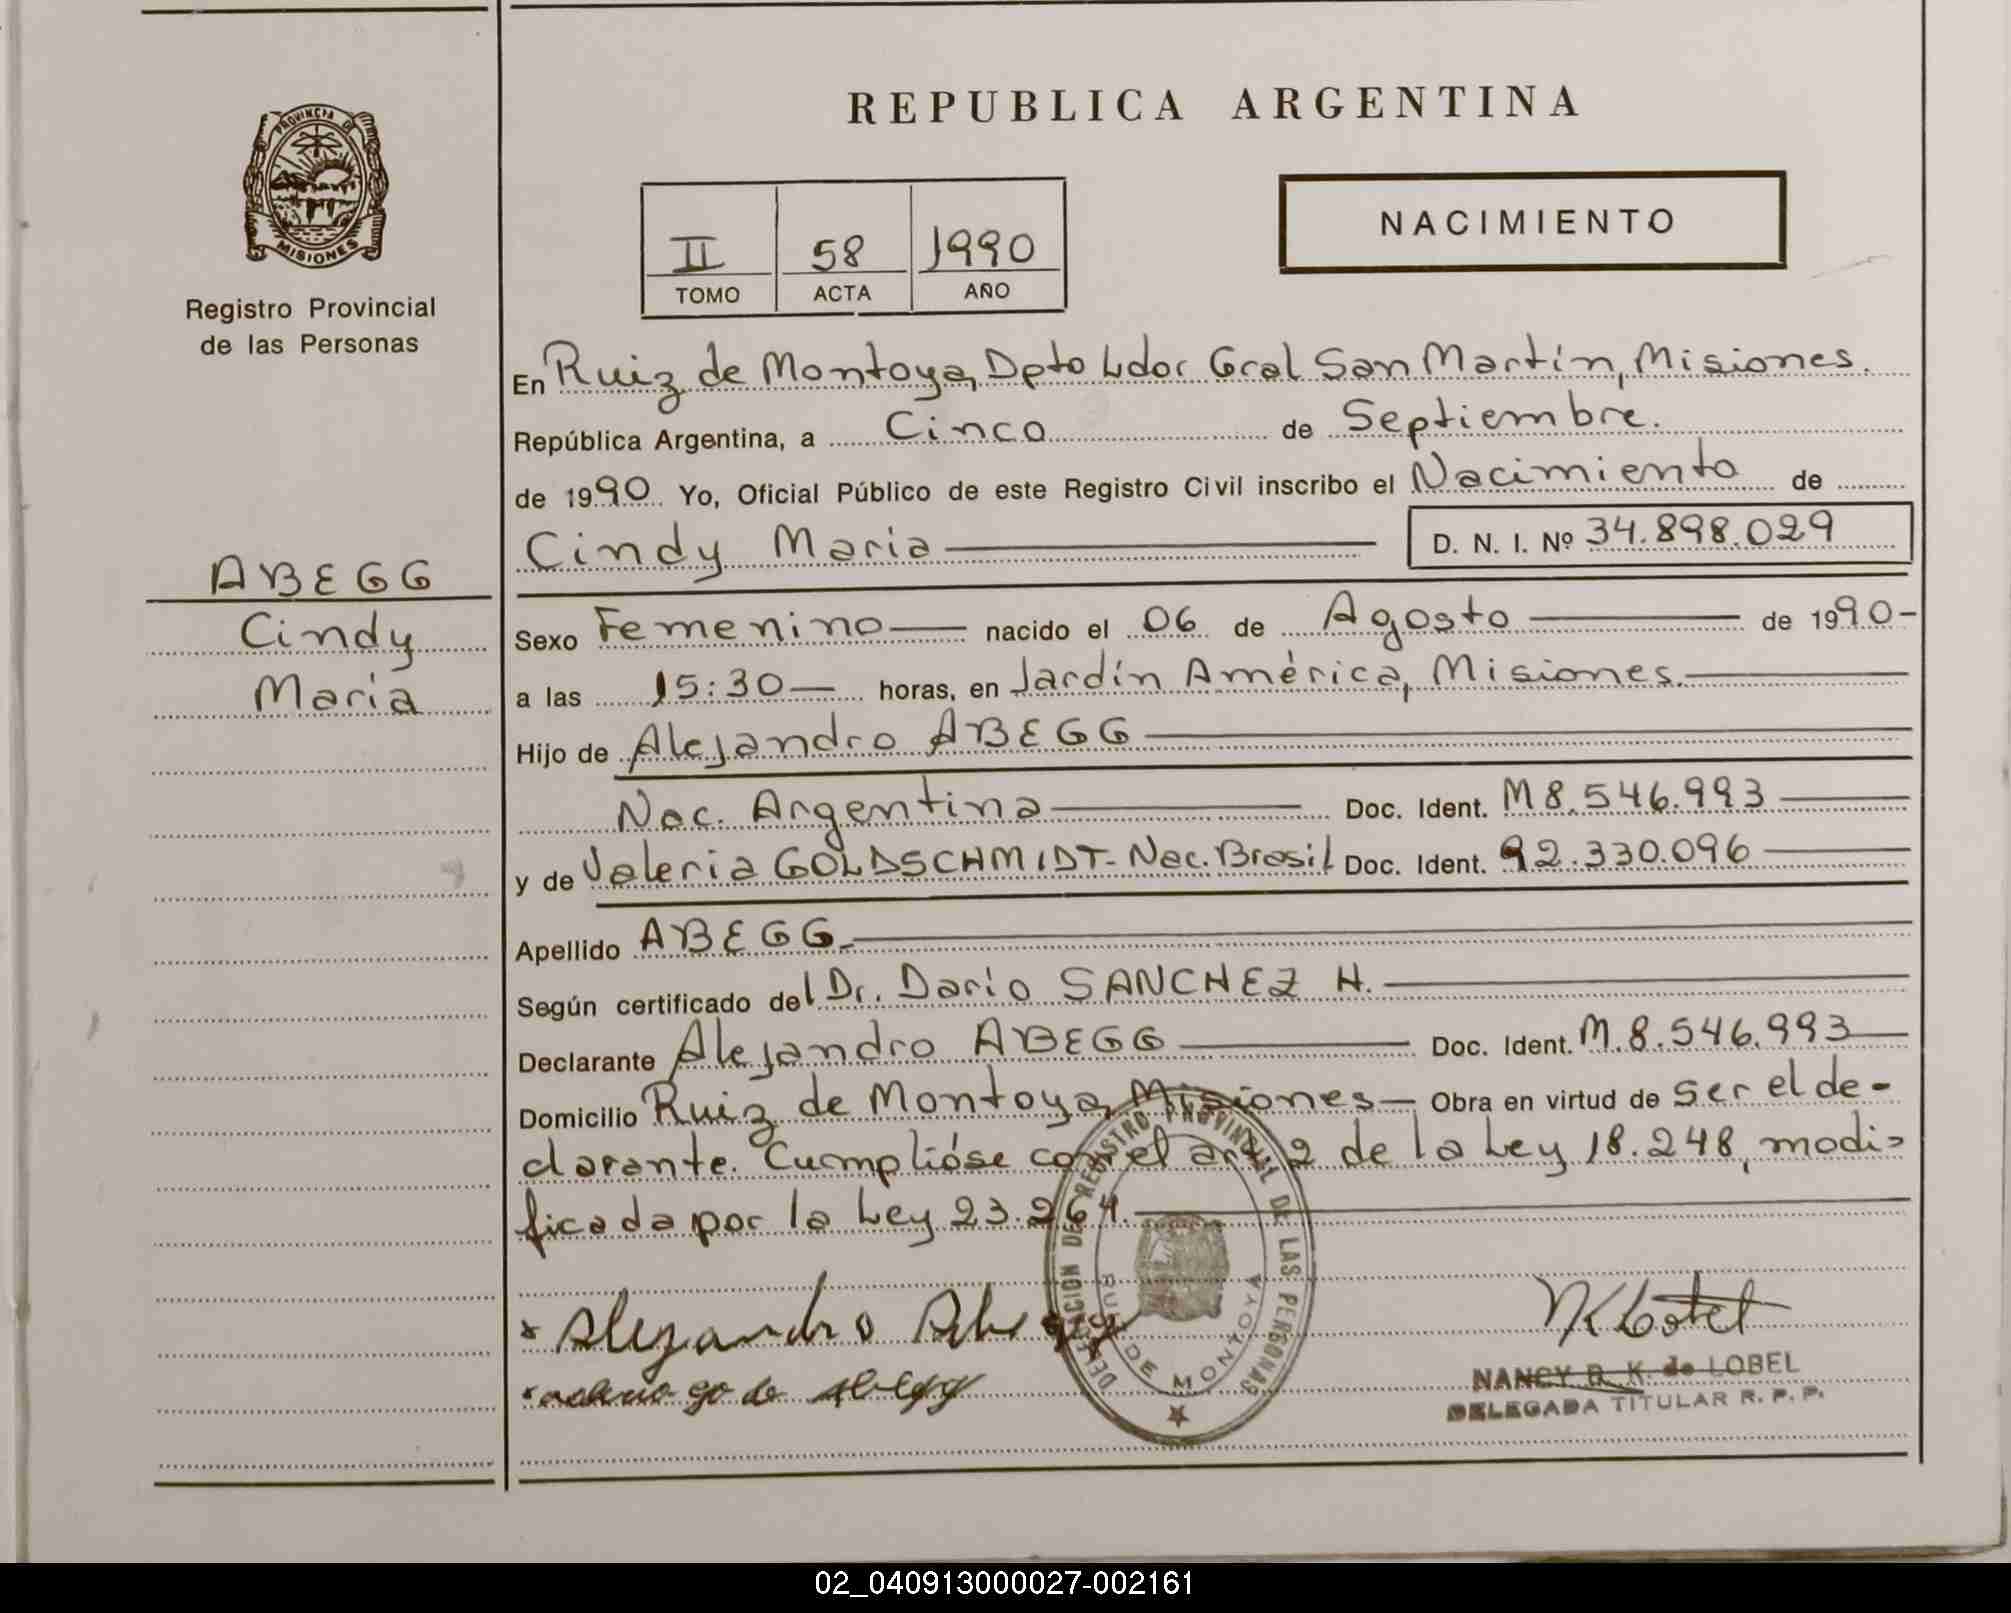 PROVINCIA DE
MISIONES
Registro Provincial
de las Personas
ABEGG
Cindy
Maria
REPUBLICA ARGENTINA
II 58 1990
TOMO ACTA AÑO
NACIMIENTO
En Ruiz de Montoya, Dpto Ldor Gral San Martín, Misiones.
República Argentina, a Cinco de Septiembre.
de 1990 Yo, Oficial Público de este Registro Civil inscribo el Nacimiento de
Cindy Maria D. N. I. Nº 34.898.029
Sexo Femenino nacido el 06 de Agosto de 1990-
a las 15:30 horas, en Jardín América, Misiones.
Hijo de Alejandro ABEGG
Nac. Argentina Doc. Ident. M 8.546.993
y de Valeria GOLDSCHMIDT- Nac. Brasil Doc. Ident. 92.330.096
Apellido ABEGG.
Según certificado del Dr. Darío SANCHEZ H.
Declarante Alejandro ABEGG Doc. Ident. M. 8.546.993
Domicilio Ruiz de Montoya, Misiones Obra en virtud de ser el de-
clarante. Cumplióse con el art. 2 de la Ley 18.248, modi=
ficada por la Ley 23.264.
x Alejandro Abegg
DELEGACION DE REGISTRO PROVINCIAL DE LAS PERSONAS
RUIZ DE MONTOYA
NANCY B. K. de LOBEL
DELEGADA TITULAR R. P. P.
02_040913000027-002161